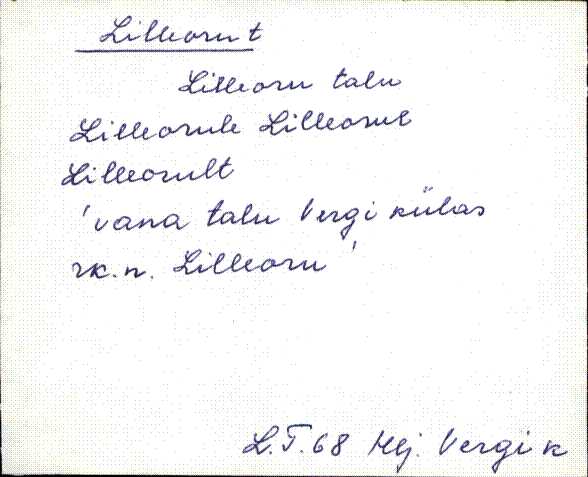 Lilleoru t
Lilleoru talu
Lilleorule Lilleorul
Lilleorult
'vana talu Vergi külas
rk.n. Lilleoru'
L.T. 68 Hlj. Vergi k